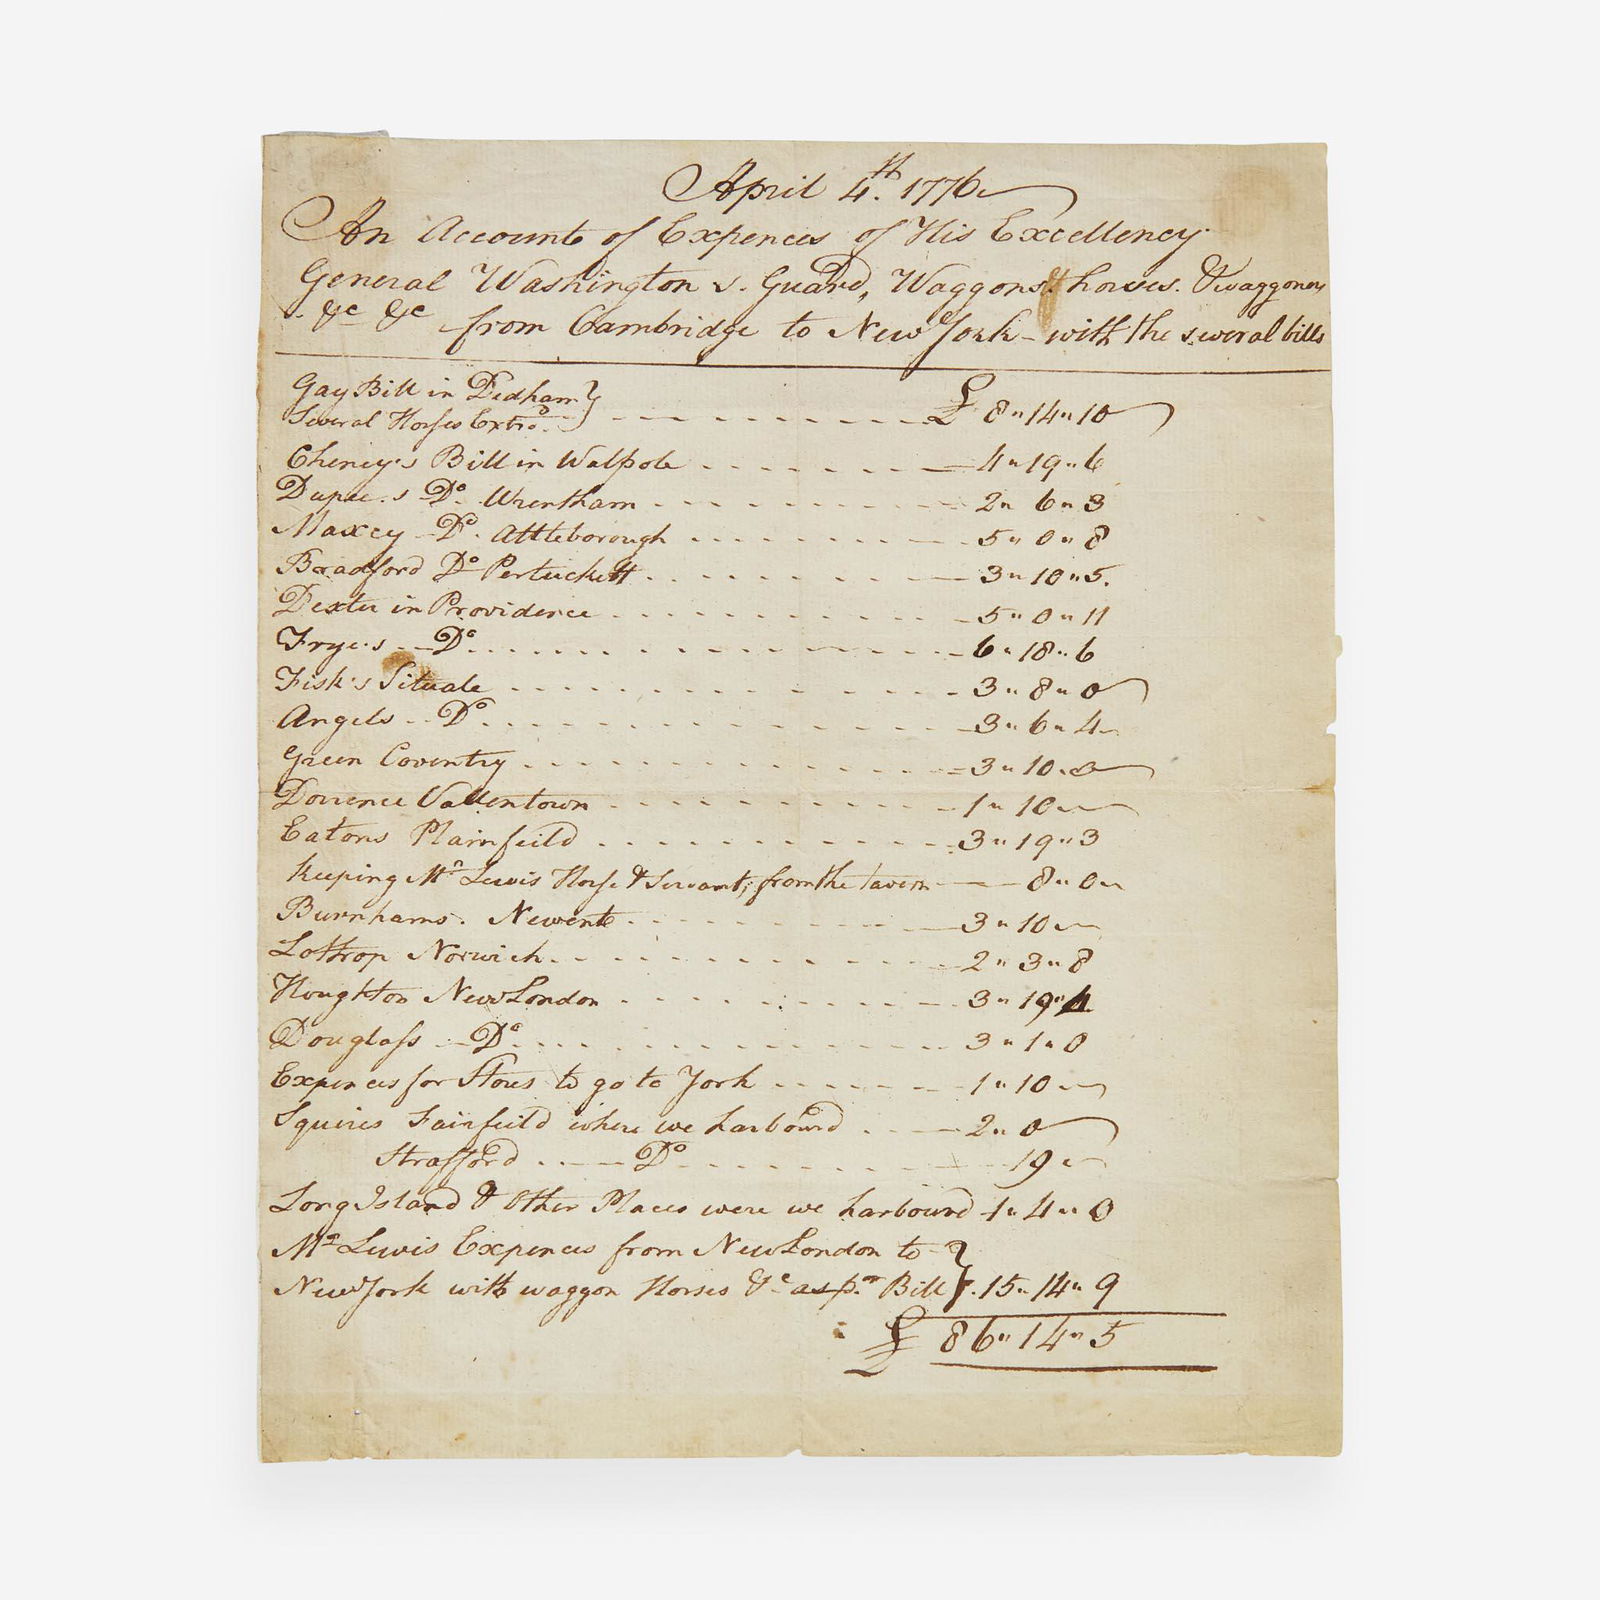 April 4th. 1776
An Account of Expences of His Excellency
General Washington s. Guard, Waggons & horses. & waggoners
&c &c from Cambridge to New York - with the several bills
Gay Bill in Dedham }
Several Horses Extro. } £ 8 " 14 " 10
Cheney's Bill in Walpole 4 " 19 " 6
Dupee.s Do. Wrentham 2 " 6 " 3
Maxcy Do. Attleborough 5 " 0 " 8
Bradford Do Pertuckett 3 " 10 " 5.
Dexter in Providence 5 " 0 " 11
Frye.s Do 6 " 18 " 6
Fisk's Situate 3 " 8 " 0
Angels Do 3 " 6 " 4
Green Coventry 3 " 10 " 0
Dorrence Vallentown 1 " 10 "
Eatons Plainfeild 3 " 19 " 3
keeping Mr Lewis Horse & Servant, from the tavern 8 " 0
Burnhams. Newent 3 " 10
Lothrop Norwich 2 " 3 " 8
Houghton New London 3 " 19 " 4
Douglass Do 3 " 1 " 0
Expences for Stores to go to York 1 " 10
Squires Fairfeild where we harbourd 2 " 0
Strafford Do 19 "
Long Island & Other Places were we harbourd 1 " 4 " 0
Mr Lewis Expences from New London to }
New York with waggon Horses &c as pr Bill } 15 " 14 " 9
£ 86 " 14 " 5